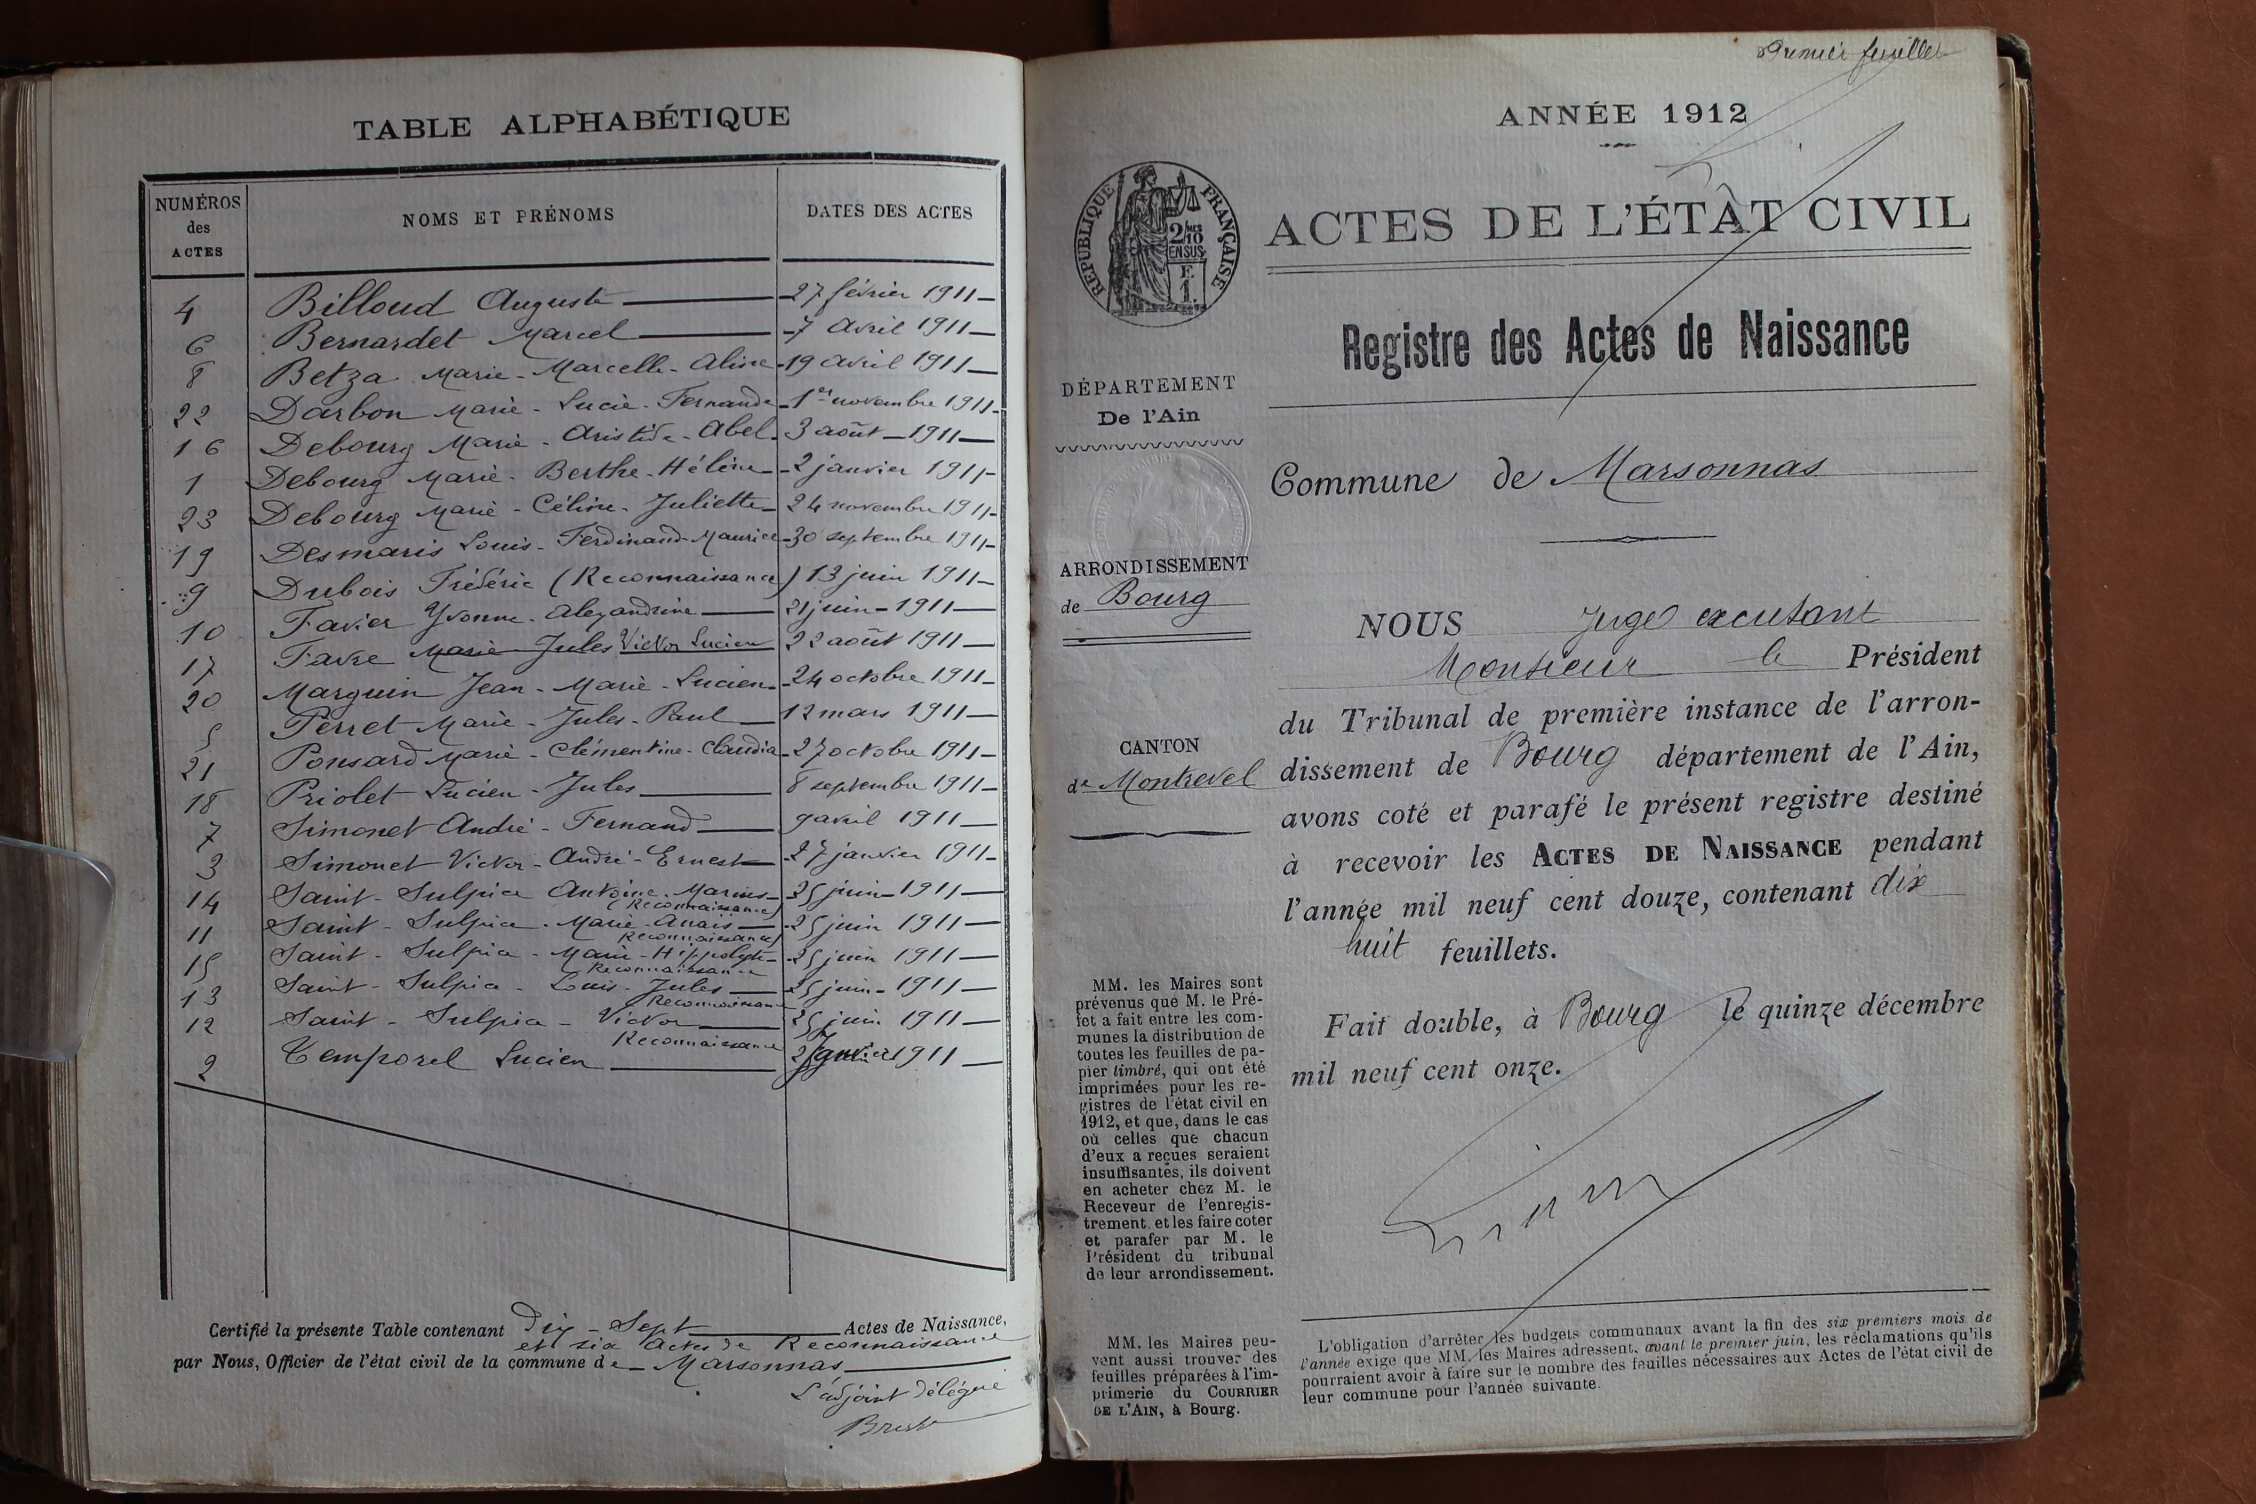 TABLE ALPHABÉTIQUE
NUMÉROS
des
ACTES
NOMS ET PRÉNOMS
DATES DES ACTES
4 Billoud Auguste 27 février 1911
6 Bernardet Marcel 7 avril 1911
8 Betza Marie - Marcelle - Aline 19 avril 1911
22 Darbon Marie - Lucie - Fernande 1er novembre 1911
16 Debourg Marie - Aristide - Abel 3 août 1911
1 Debourg Marie - Berthe - Hélène 2 janvier 1911
23 Debourg Marie - Céline - Juliette 24 novembre 1911
19 Desmaris Louis - Ferdinand - Maurice 30 septembre 1911
9 Dubois Frédéric (Reconnaissance) 13 juin 1911
10 Favier Yvonne - Alexandrine 21 juin 1911
17 Favre Marie Jules Victor Lucien 22 août 1911
20 Marguin Jean - Marie - Lucien 24 octobre 1911
5 Perret Marie - Jules - Paul 12 mars 1911
21 Ponsard Marie - Clémentine - Claudia 27 octobre 1911
18 Priolet Lucien - Jules 8 septembre 1911
7 Simonet André - Fernand 9 avril 1911
3 Simonet Victor - André - Ernest 27 janvier 1911
14 Saint - Sulpice Antoine - Marius 25 juin 1911
(Reconnaissance)
11 Saint - Sulpice - Marie - Anaïs 25 juin 1911
Reconnaissance)
15 Saint - Sulpice - Marie - Hippolyte 25 juin 1911
Reconnaissance
13 Saint - Sulpice - Louis - Jules 25 juin 1911
(Reconnaissance
12 Saint - Sulpice - Victor 25 juin 1911
Reconnaissance
2 Temporel Lucien janvier 1911
Certifié la présente Table contenant Dix - Sept Actes de Naissance,
et six actes de Reconnaissance
par Nous, Officier de l'état civil de la commune de Marsonnas
L'adjoint délégué
Premier feuillet
ANNÉE 1912
RÉPUBLIQUE FRANÇAISE
2/10
EN SUS
ACTES DE L'ÉTAT CIVIL
Registre des Actes de Naissance
DÉPARTEMENT
De l'Ain
Commune de Marsonnas
ARRONDISSEMENT
de Bourg
NOUS Juge excusant
Monsieur le Président
du Tribunal de première instance de l'arron-
dissement de Bourg département de l'Ain,
avons coté et parafé le présent registre destiné
à recevoir les ACTES DE NAISSANCE pendant
l'année mil neuf cent douze, contenant dix
huit feuillets.
Fait double, à Bourg le quinze décembre
mil neuf cent onze.
CANTON
de Montrevel
MM. les Maires sont
prévenus que M. le Pré-
fet a fait entre les com-
munes la distribution de
toutes les feuilles de pa-
pier timbré, qui ont été
imprimées pour les re-
gistres de l'état civil en
1912, et que, dans le cas
où celles que chacun
d'eux a reçues seraient
insuffisantes, ils doivent
en acheter chez M. le
Receveur de l'enregis-
trement, et les faire coter
et parafer par M. le
Président du tribunal
de leur arrondissement.
MM. les Maires peu-
vent aussi trouver des
feuilles préparées à l'im-
primerie du COURRIER
DE L'AIN, à Bourg.
L'obligation d'arrêter les budgets communaux avant la fin des six premiers mois de
l'année exige que MM. les Maires adressent, avant le premier juin, les réclamations qu'ils
pourraient avoir à faire sur le nombre des feuilles nécessaires aux Actes de l'état civil de
leur commune pour l'année suivante.